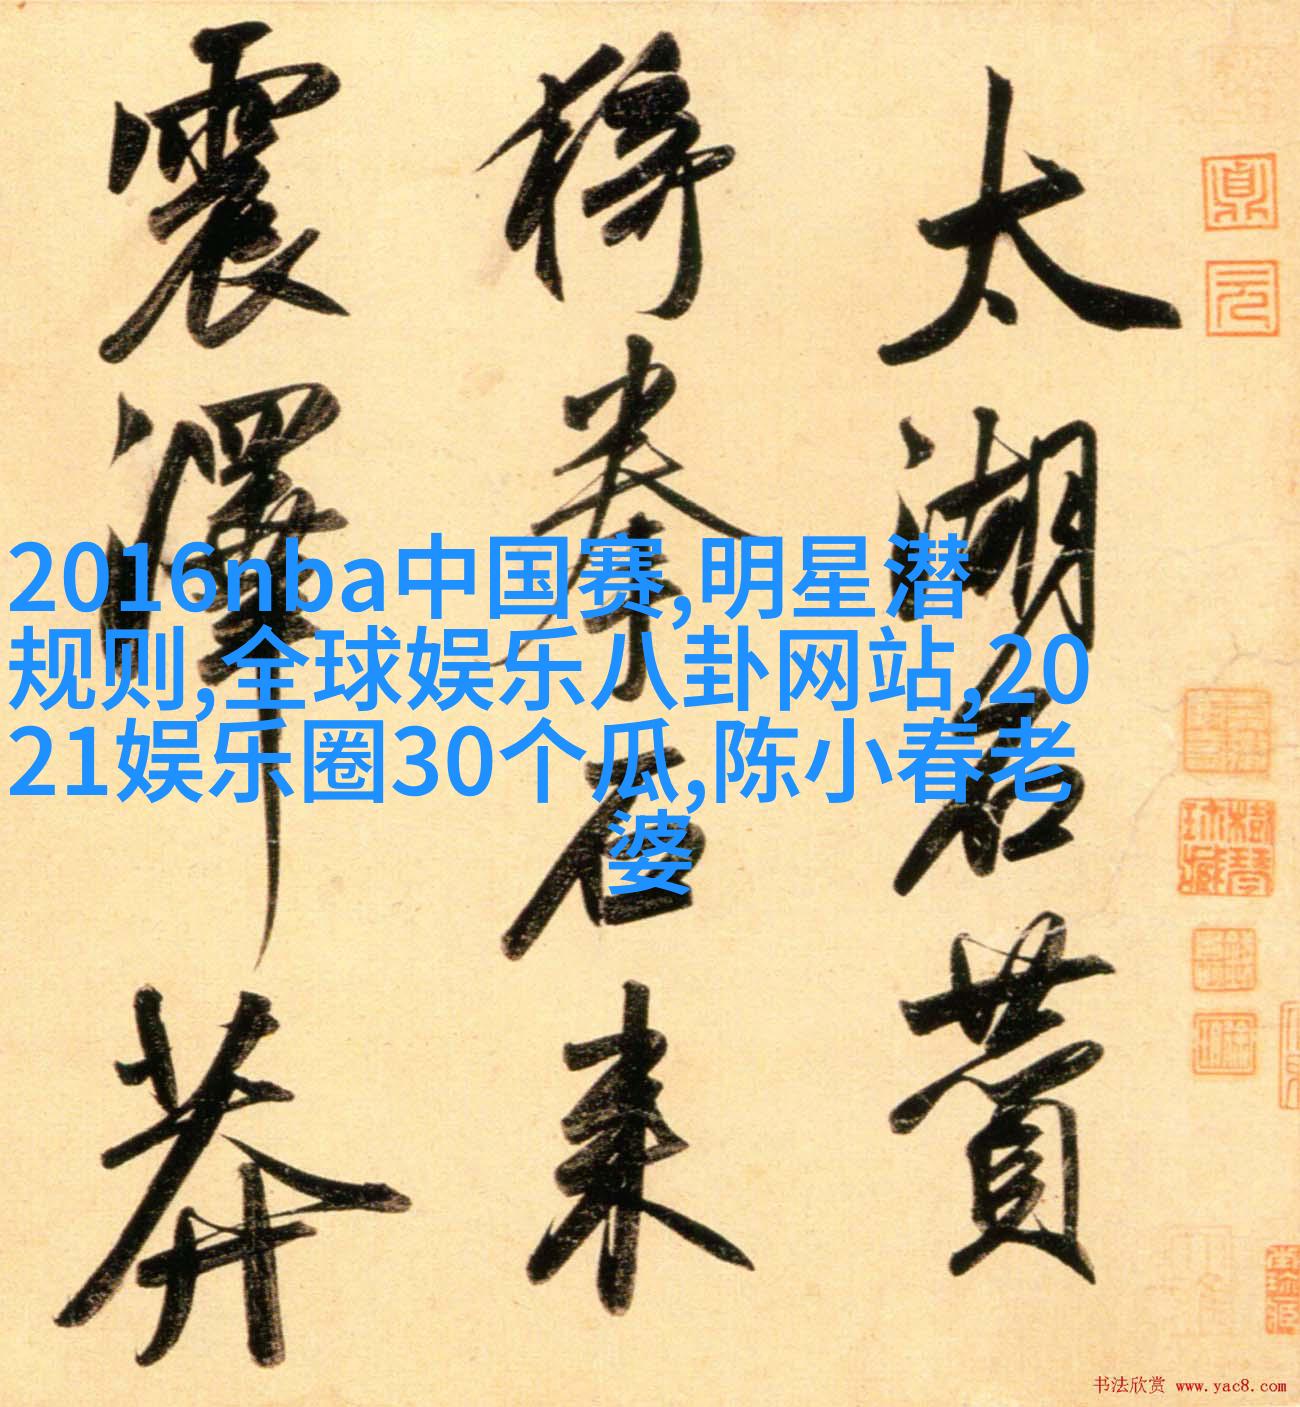 太湖賛
猗拳石来
震澤莽
2016nba中国赛,明星潜
规则,全球娱乐八卦网站,20
21娱乐圈30个瓜,陈小春老
婆
书法欣赏 www.yac8.com